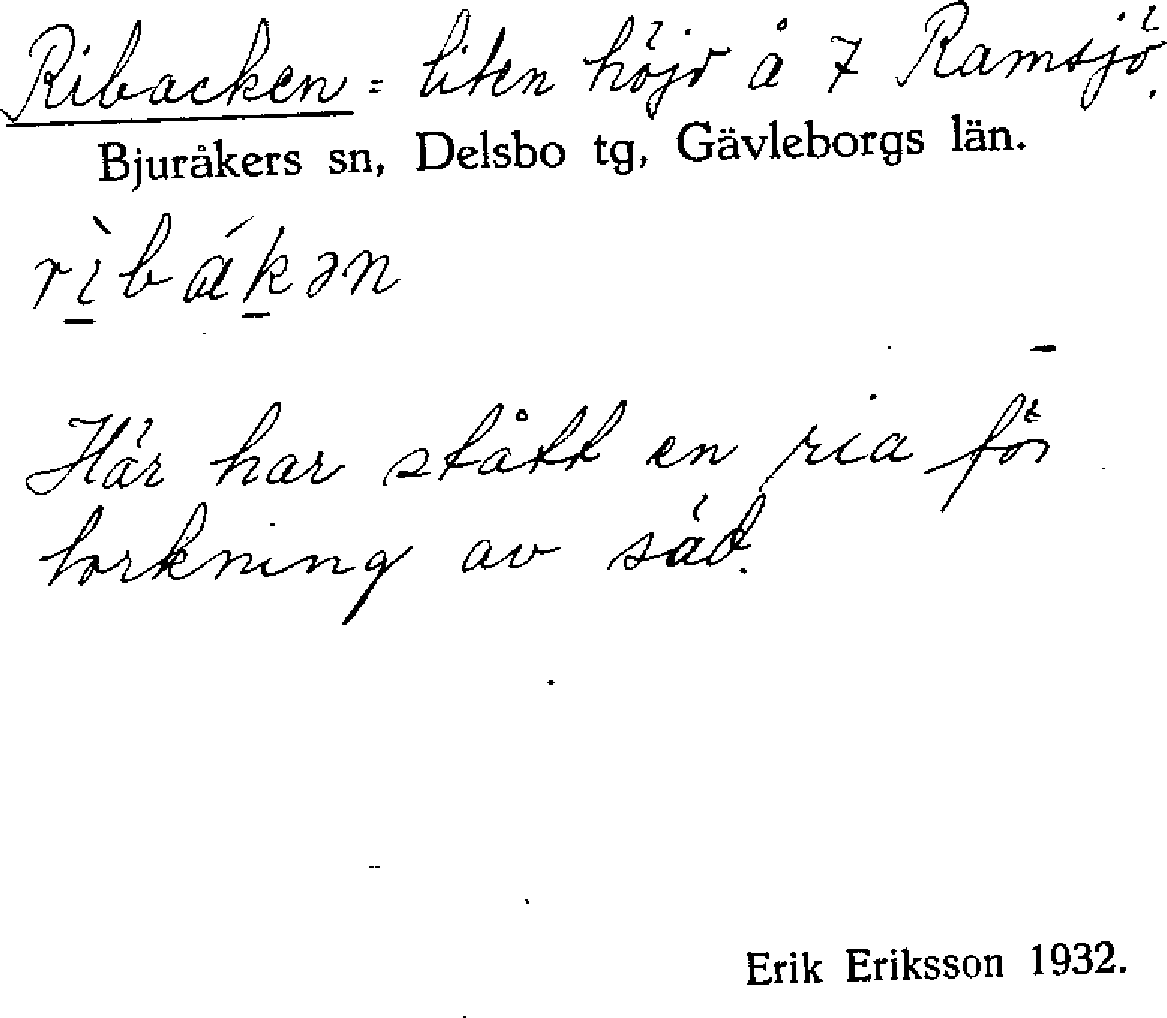 Ribacken = liten höjd å 7 Ramsjö.
Bjuråkers sn, Delsbo tg, Gävleborgs län.
rìbákən
Här har stått en ria för
torkning av säd.
Erik Eriksson 1932.